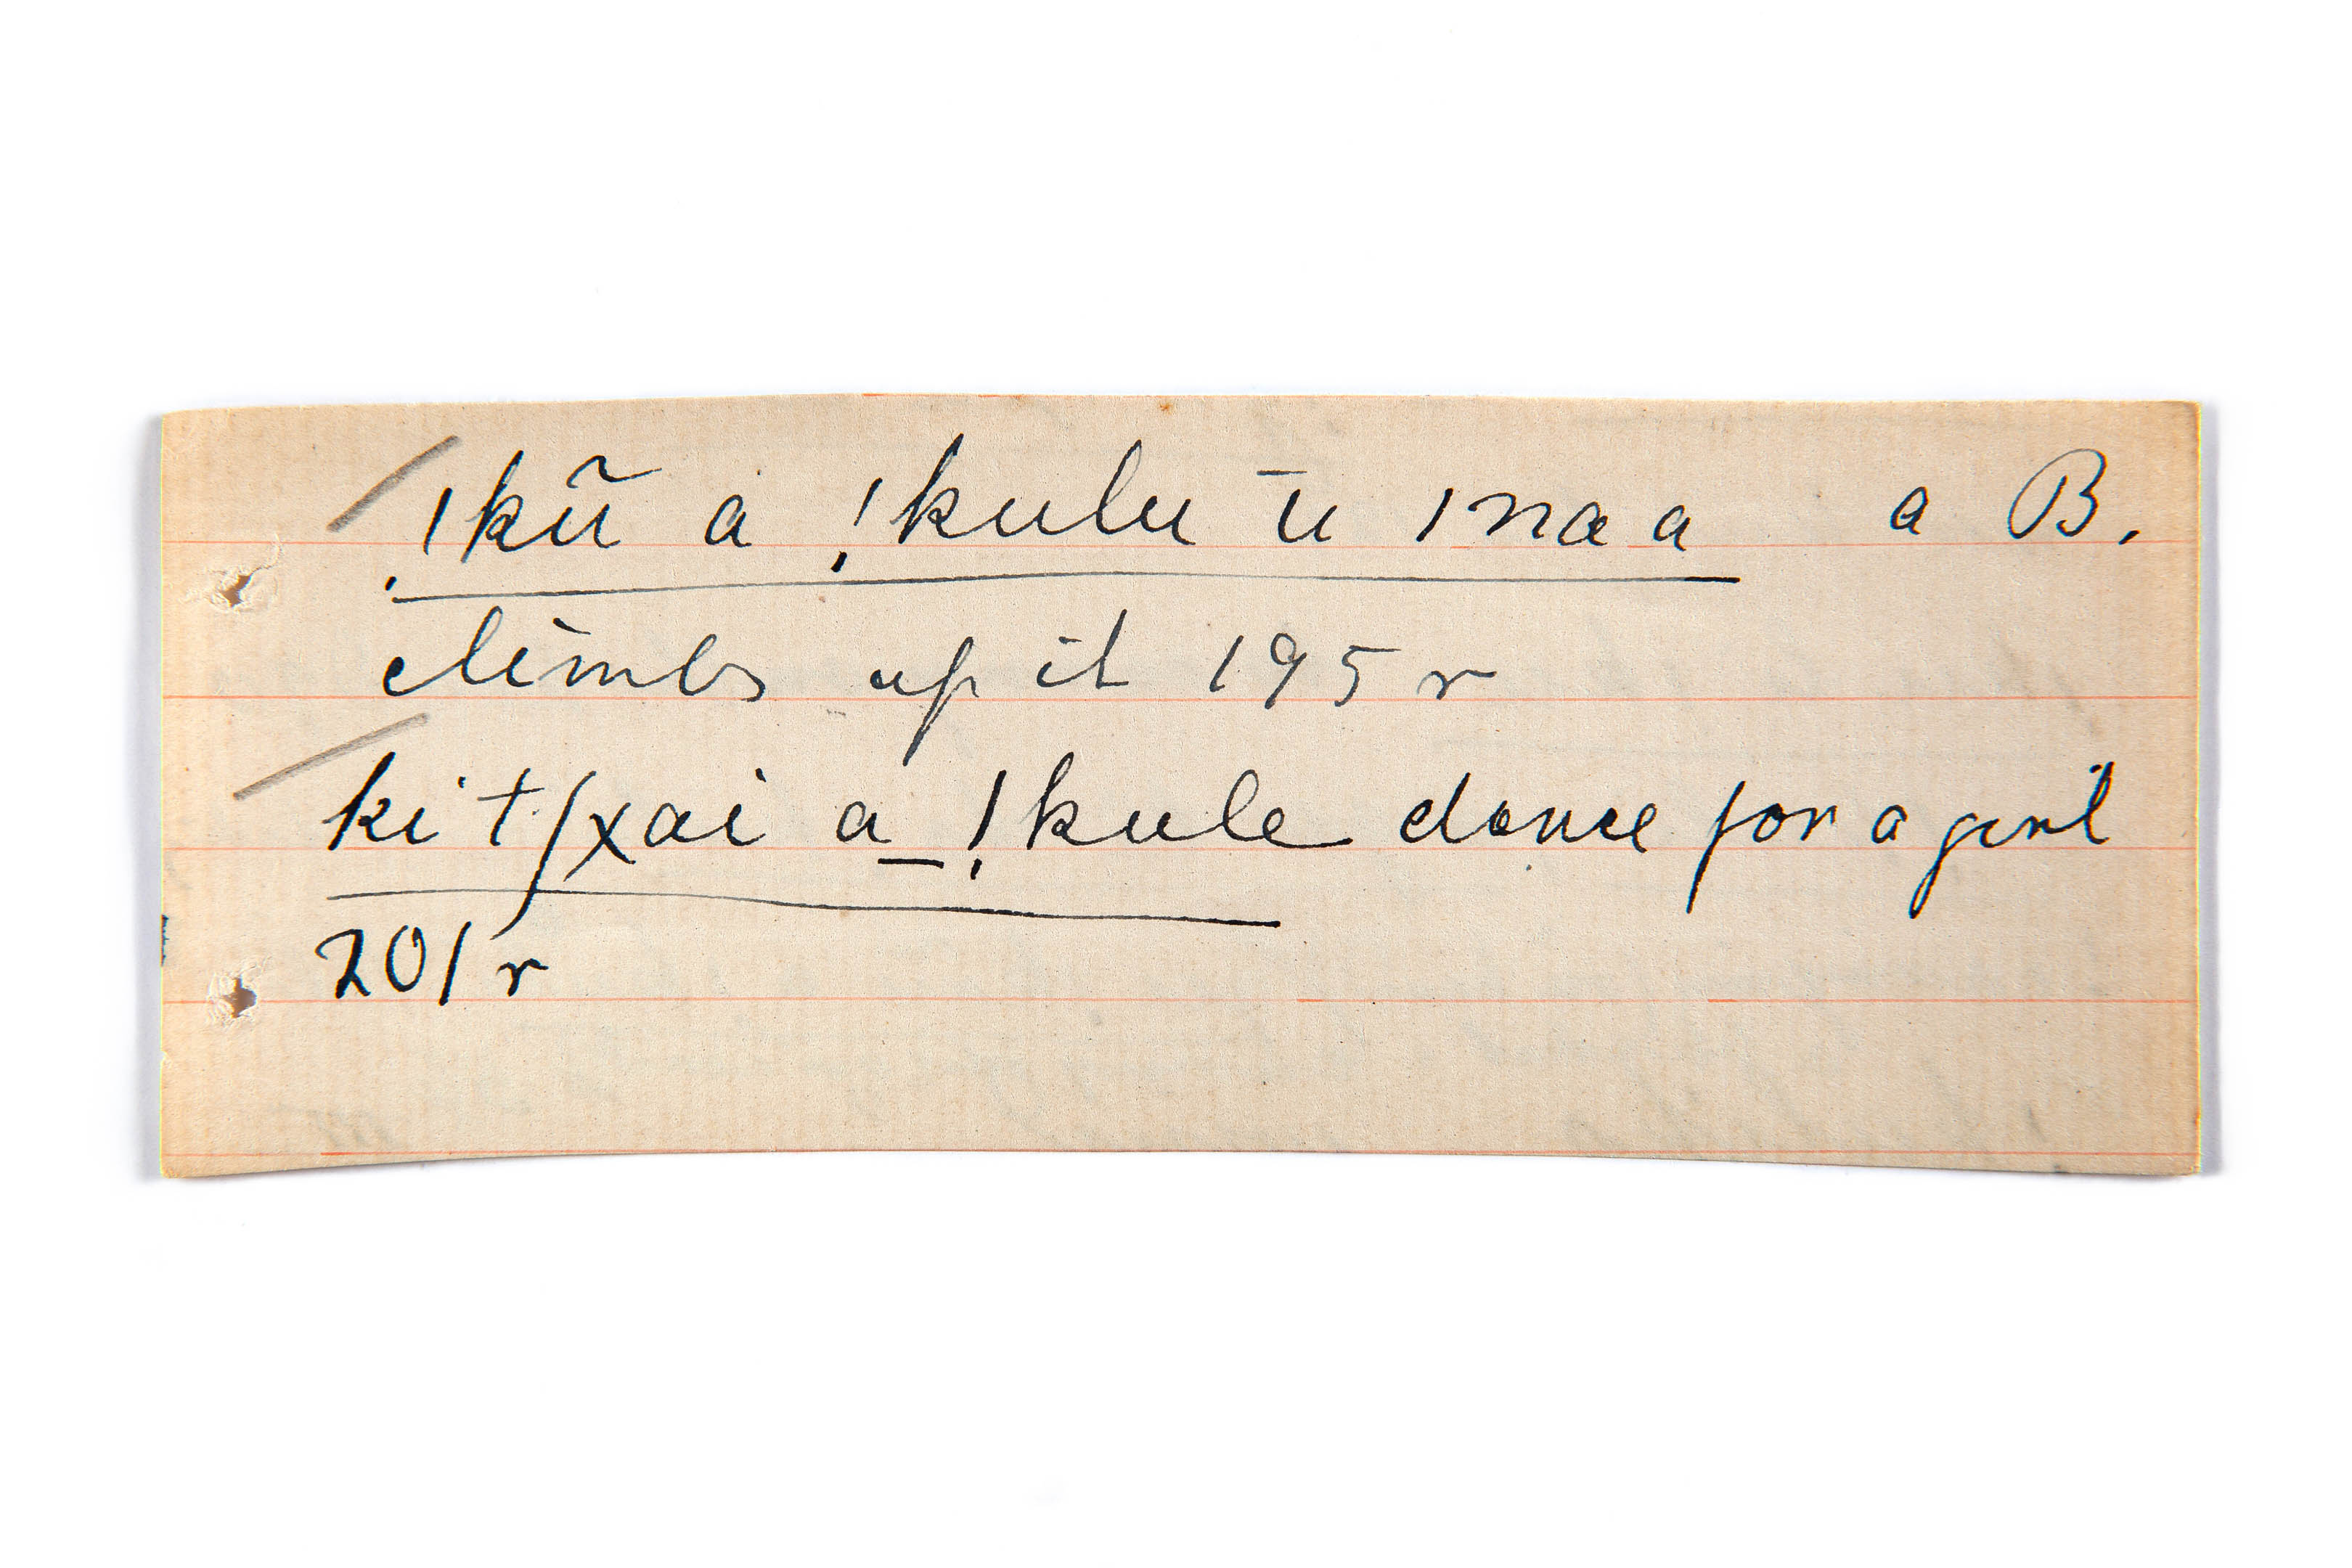 ǀkũ a ǃkulu ū ǀnaa a B.
climbs up it 195 r
ki tʃxai a ǃkule dance for a girl
201 r